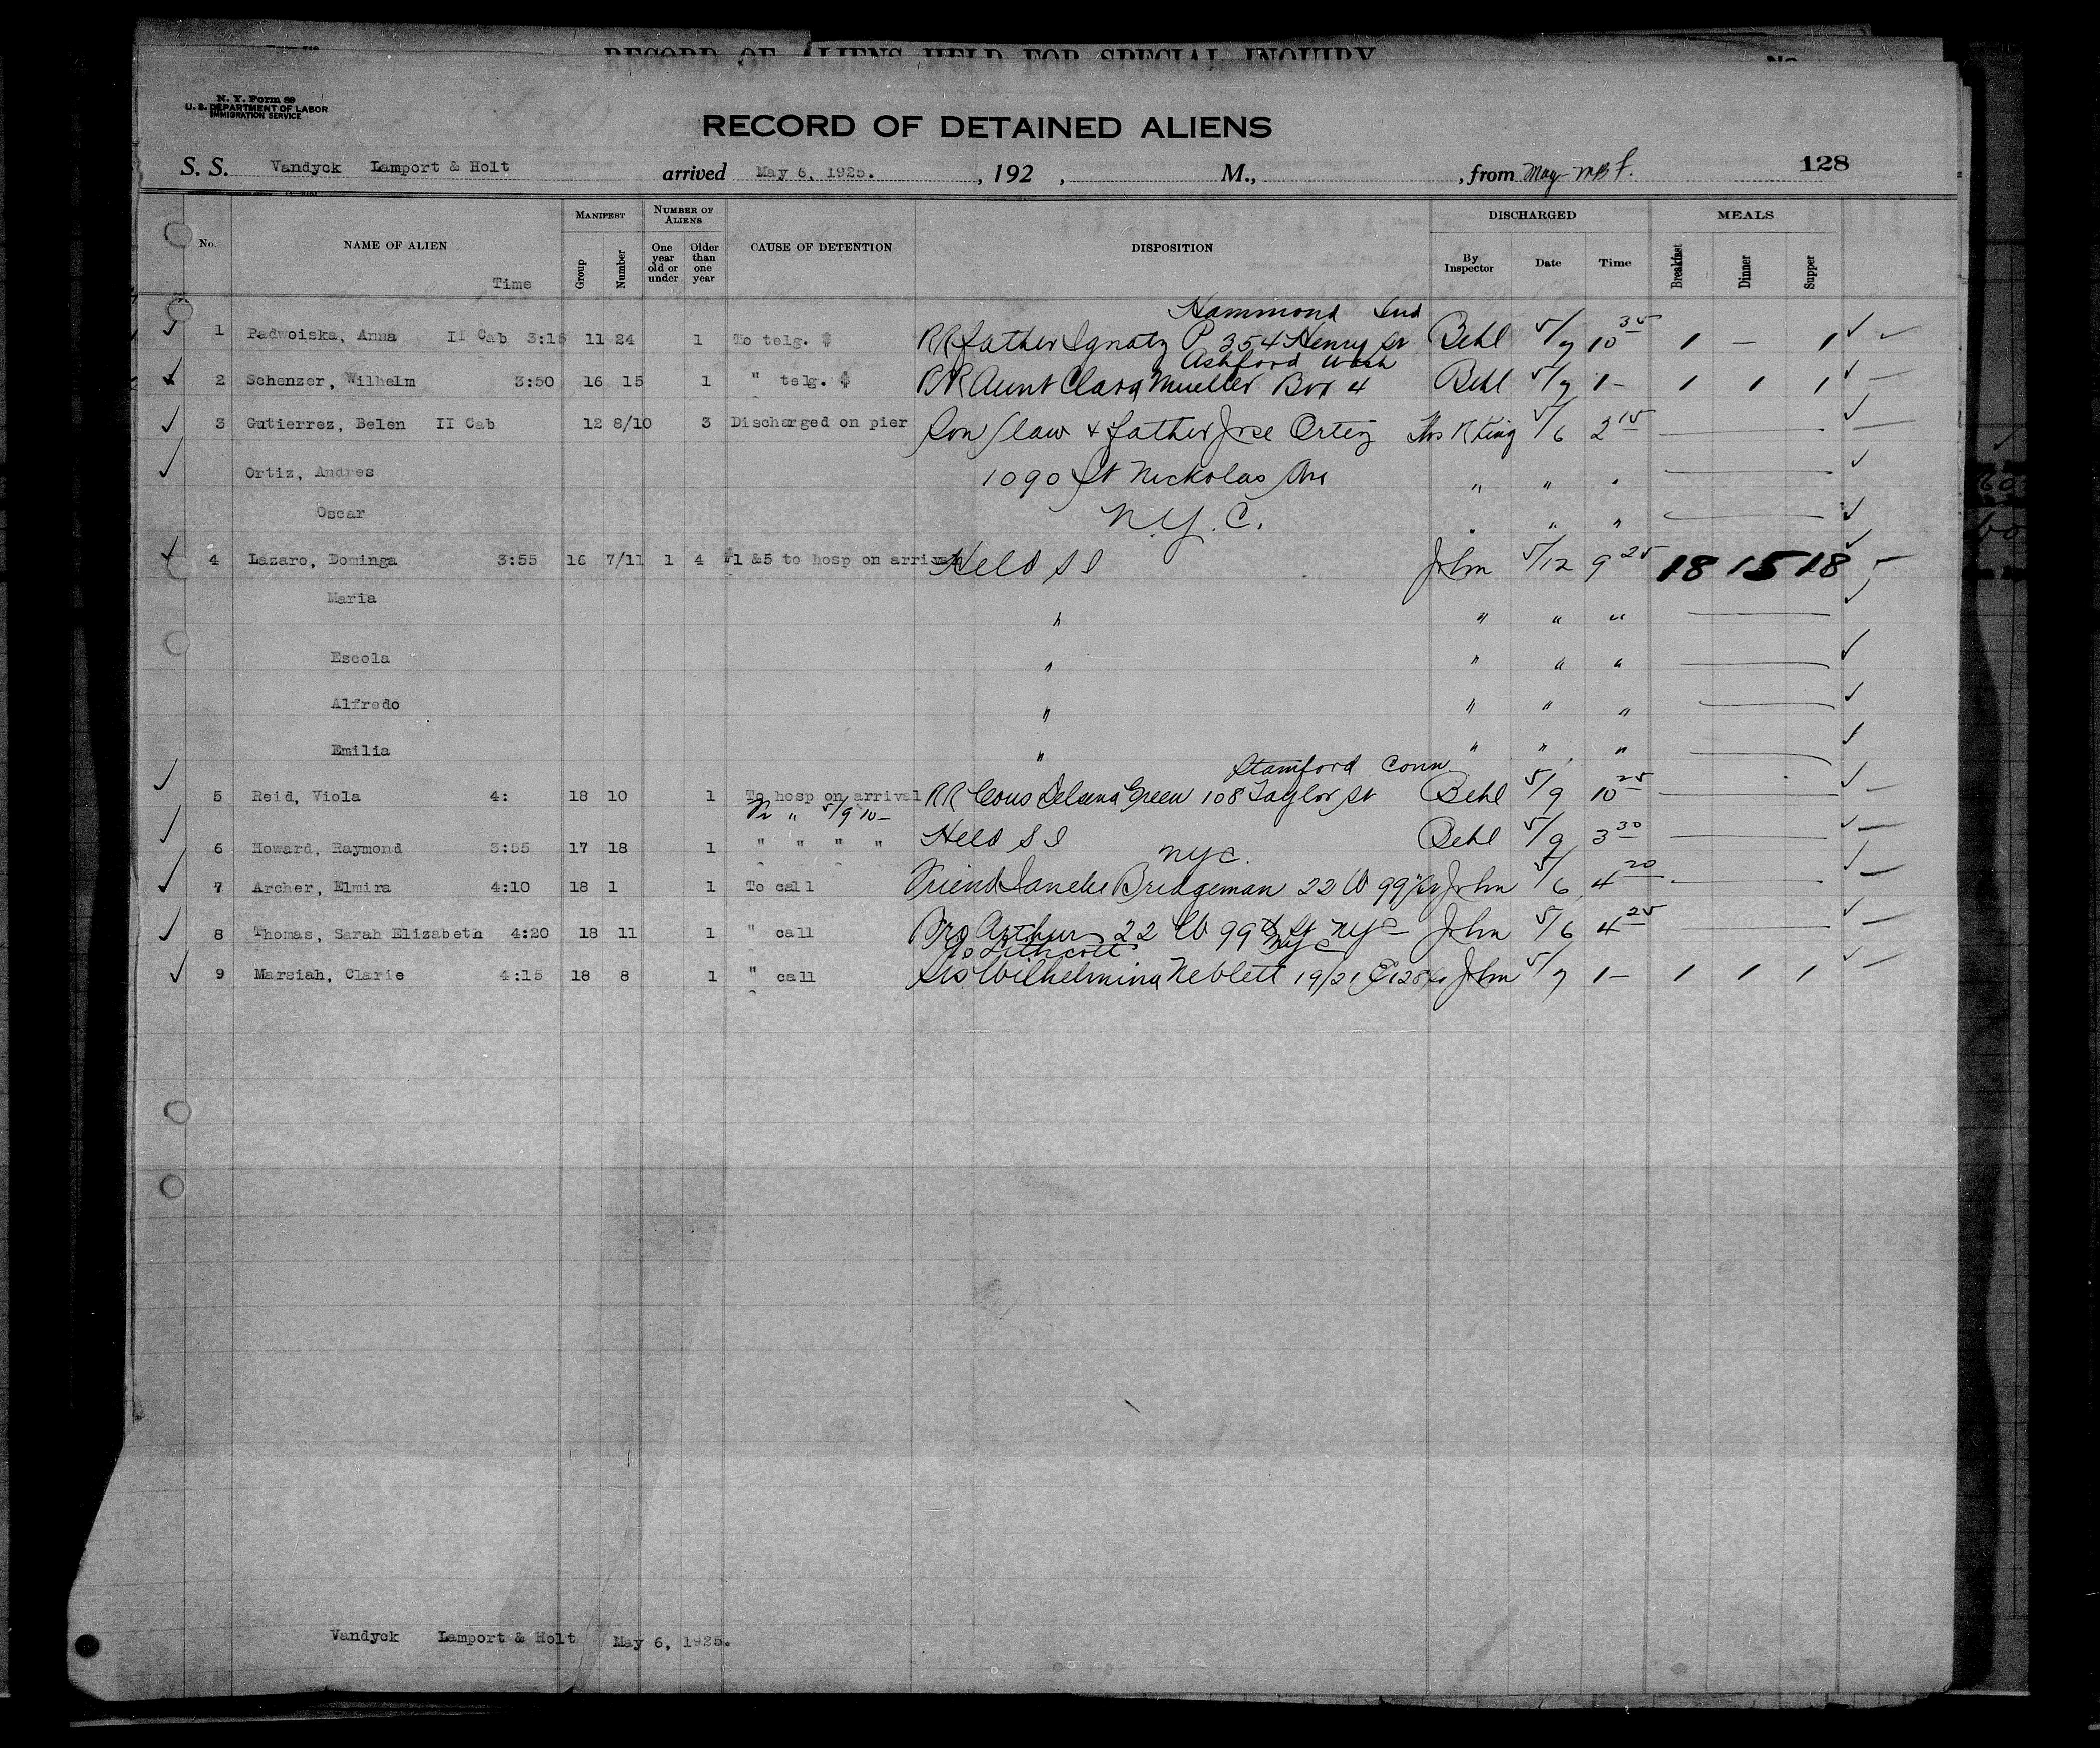 RECORD OF ALIENS HELD FOR SPECIAL INQUIRY
N. Y. Form 89
U. S. DEPARTMENT OF LABOR
IMMIGRATION SERVICE
RECORD OF DETAINED ALIENS
S. S. Vandyck Lamport & Holt arrived May 6, 1925. , 192 , M., , from May 128
No. NAME OF ALIEN Time MANIFEST Group Number NUMBER OF ALIENS One year old or under Older than one year CAUSE OF DETENTION DISPOSITION DISCHARGED By Inspector Date Time MEALS Breakfast Dinner Supper
Hammond Ind
1 Padwoiska, Anna II Cab 3:15 11 24 1 To telg. $ RR father Ignatz P 354 Henry St Behl 5/7 10 35 1 — 1
Ashford Wash
2 Schenzer, Wilhelm 3:50 16 15 1 " telg. $ RR Aunt Clara Mueller Box 4 Behl 5/7 1- 1 1 1
3 Gutierrez, Belen II Cab 12 8/10 3 Discharged on pier Son/law & father Jose Ortiz Thos R King 5/6 2 15
Ortiz, Andres 1090 St Nickolas Ave " " "
Oscar N.Y.C. " " "
4 Lazaro, Dominga 3:55 16 7/11 1 4 #1 &5 to hosp on arrival Held S I John 5/12 9 25 18 15 18
Maria " " " "
Escola " " " "
Alfredo " " " "
Emilia " " " "
Stamford Conn
5 Reid, Viola 4: 18 10 1 To hosp on arrival RR Cous Delsena Green 108 Taylor St Behl 5/9 10 25
" 5/9 10-
6 Howard, Raymond 3:55 17 18 1 " " " " Held S I Behl 5/9 3 30
NYC.
7 Archer, Elmira 4:10 18 1 1 To call Friend Bridgeman 22 W 99 St John 5/6 4 20
8 Thomas, Sarah Elizabeth 4:20 18 11 1 " call Bro Arthur 22 W 99th St NYC John 5/6 4 25
c/o Lithcott NYC
9 Marsiah, Clarie 4:15 18 8 1 " call Sis Wilhelmina Neblett 19/21 E 128 St John 5/7 1- 1 1 1
Vandyck Lamport & Holt May 6, 1925.